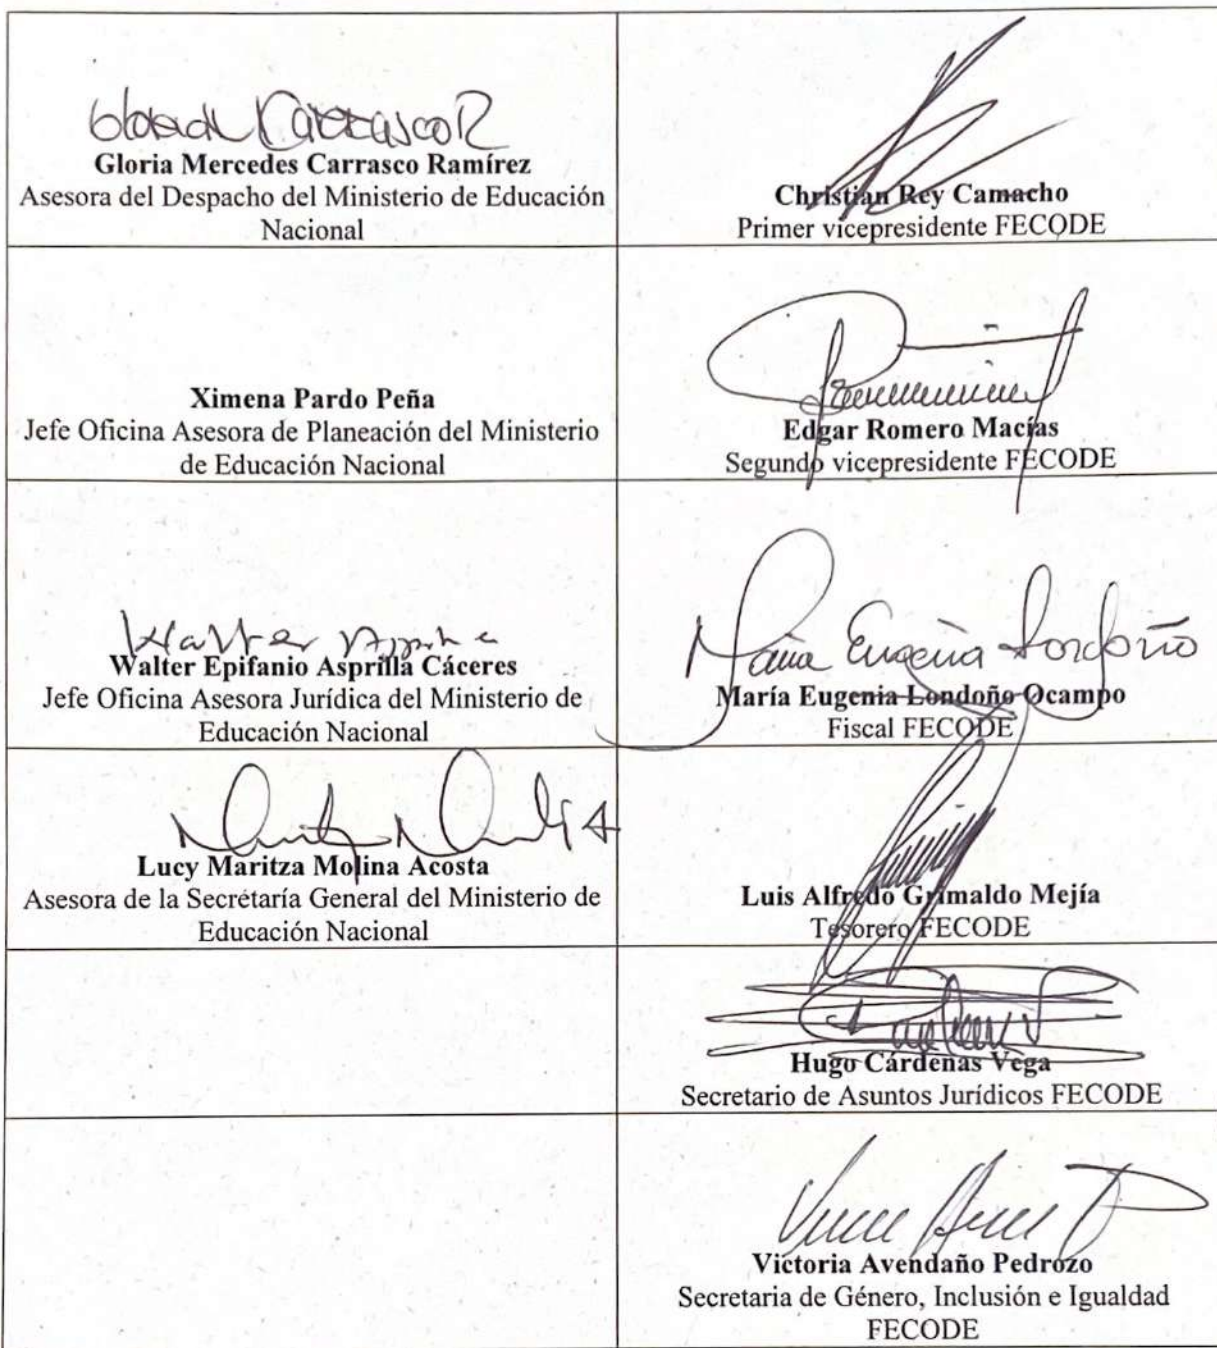 Gloria Carrasco R
Gloria Mercedes Carrasco Ramírez
Asesora del Despacho del Ministerio de Educación
Nacional
Christian Rey Camacho
Primer vicepresidente FECODE
Ximena Pardo Peña
Jefe Oficina Asesora de Planeación del Ministerio
de Educación Nacional
Edgar Romero Macías
Segundo vicepresidente FECODE
Walter
Walter Epifanio Asprilla Cáceres
Jefe Oficina Asesora Jurídica del Ministerio de
Educación Nacional
Maria Eugenia Londoño
María Eugenia Londoño Ocampo
Fiscal FECODE
Lucy Maritza Molina Acosta
Asesora de la Secretaría General del Ministerio de
Educación Nacional
Luis Alfredo Grimaldo Mejía
Tesorero FECODE
Hugo Cárdenas Vega
Secretario de Asuntos Jurídicos FECODE
Victoria Avendaño Pedrozo
Secretaria de Género, Inclusión e Igualdad
FECODE